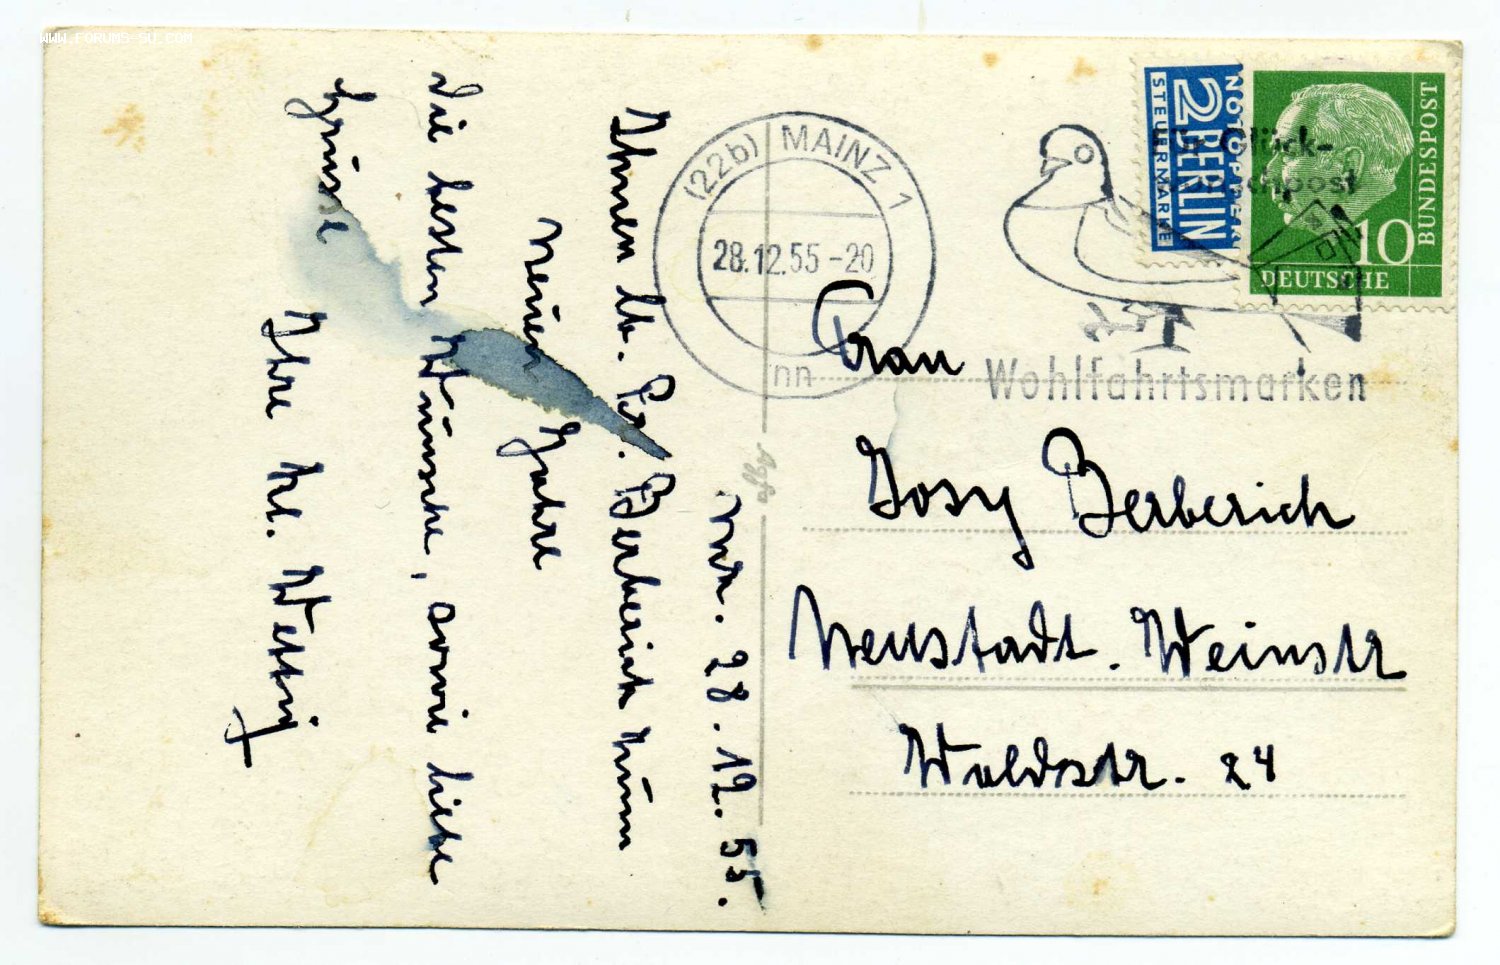 WWW.FORUMS-SU.COM
28.12.55.
Ihnen lb. Fr. Berberich zum
neuen Jahre
die besten Wünsche, sowie liebe
Grüsse
Ihre
Agfa
(22b) MAINZ 1
28.12.55-20
nn
Für Glück-
wunschpost
Wohlfahrtsmarken
NOTOPFER
2 BERLIN
STEUERMARKE
DEUTSCHE
BUNDESPOST
10
Frau
Josy Berberich
Neustadt. Weinstr
Waldstr. 24